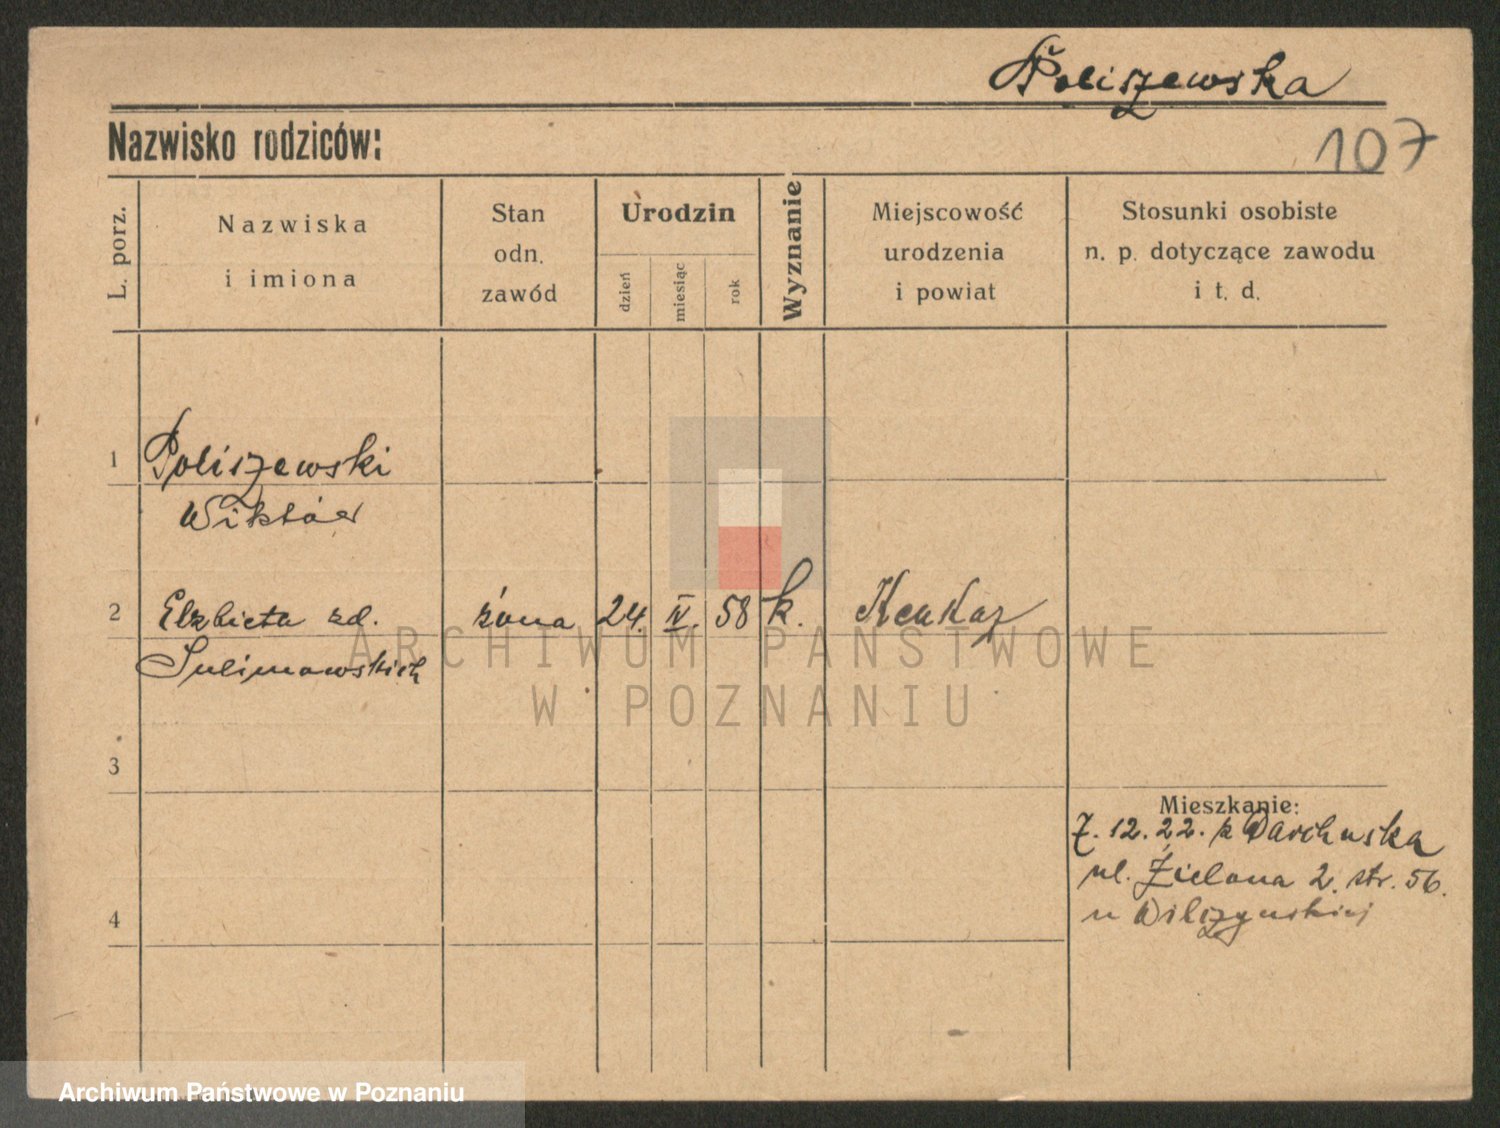 Poliszewska
Nazwisko rodziców:
107
L. porz.
Nazwiska
i imiona
Stan
odn.
zawód
Urodzin
dzień
miesiąc
rok
Wyznanie
Miejscowość
urodzenia
i powiat
Stosunki osobiste
n. p. dotyczące zawodu
i t. d.
1 Poliszewski
Wiktór
2 Elzbieta zd. żona 24. IV. 58 k.
Sulimowskich
3
Mieszkanie:
7. 12. 22. z
ul. Zielona 2. str. 56.
4
u Wilczyńskiej
ARCHIWUM PAŃSTWOWE
W POZNANIU
Archiwum Państwowe w Poznaniu